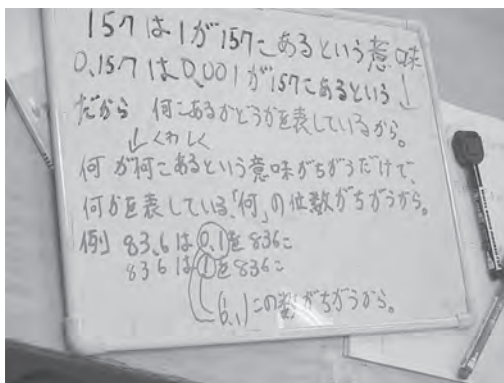 157は1が157こあるという意味
0.157は0.001が157こあるという↓
だから 何こあるかどうかを表しているから。
↓くわしく
何が何こあるという意味がちがうだけで、
何かを表している、「何」の位数がちがうから。
例) 83.6は0.1を836こ
836は1を836こ
この数がちがうから。